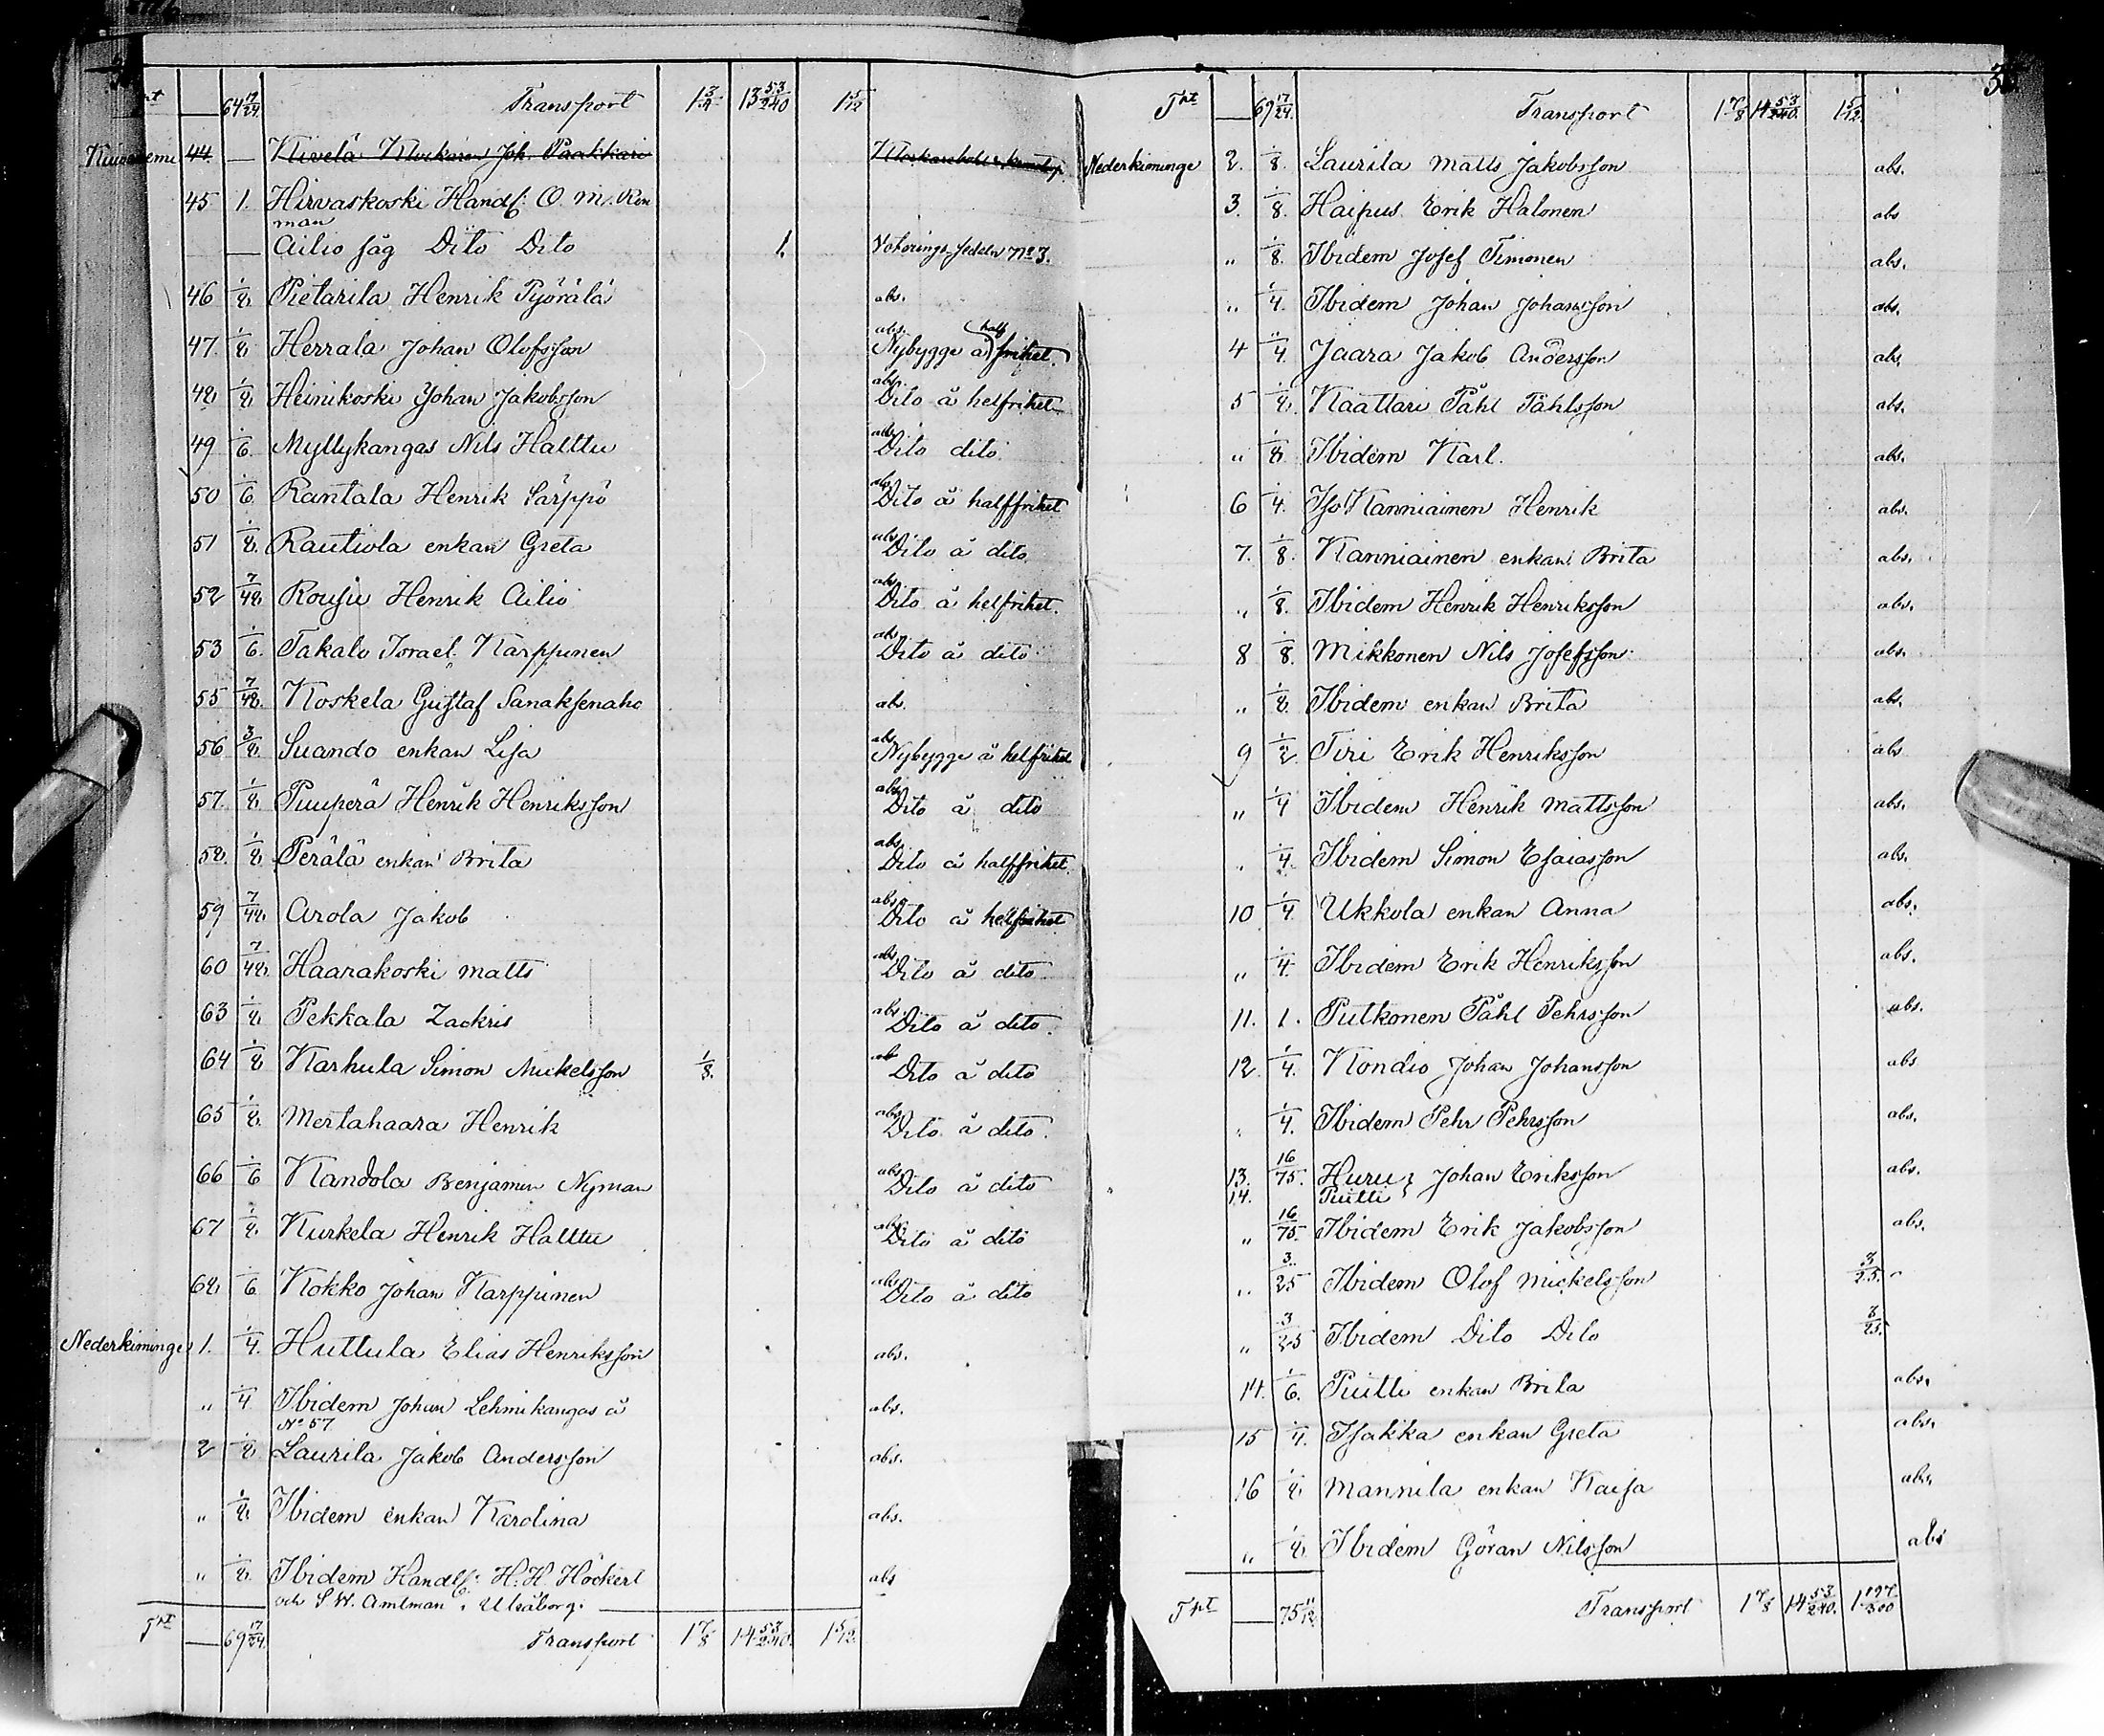 64 7/24. Transport 1 3/4 13 53/240 1 5/12
44. — Kivelä Klockaren Joh. Paakkari
45 1. Hirvaskoski Handl: O. M. Ron
man
— Ailio såg Dito Dito 1. Voterings-sedeln No 3.
46 1/8. Pietarila Henrik Pyörälä abs.
47. 1/8 Herrala Johan Olofsson abs. Nybygge å half frihet.
48. 1/8. Heinikoski Johan Jakobsson abs. Dito å helfrihet
49 1/6. Myllykangas Nils Halttu abs. Dito dito
50 1/6. Rantala Henrik Särppö abs. Dito å halffrihet
51 1/8. Rautiola enkan Greta abs Dito å dito
52 7/48 Rousu Henrik Ailio abs Dito å helfrihet.
53 1/6. Takalo Israel Karppinen abs Dito å dito
55 7/48. Koskela Gustaf Sanaksenaho abs.
56 3/8. Suando enkan Lisa abs Nybygge å helfrihet
57. 1/8. Puuperä Henrik Henriksson abs Dito å dito
58. 1/8. Perälä enkan Brita abs Dito å halffrihet.
59 7/48. Arola Jakob abs. Dito å helfrihet
60 7/48. Haarakoski Matts abs Dito å dito
63 1/8. Pekkala Zackris abs. Dito å dito.
64 1/8 Karhula Simon Mickelsson 1/8. ab Dito å dito
65 1/8. Mertahaara Henrik abs Dito å dito.
66 1/6 Kandola Benjamin Nyman abs Dito å dito
67 1/8. Kurkela Henrik Halttu abs Dito å dito
68. 1/6. Kokko Johan Karppinen abs Dito å dito
Nederkiminge 1. 1/4. Huttula Elias Henriksson abs.
" 1/4 Ibidem Johan Lehmikangas å abs.
No 57
2 1/8. Laurila Jakob Andersson abs.
" 1/8. Ibidem enkan Karolina abs.
" 1/8. Ibidem Handl: H: H. Höckert abs
och S. W. Antman i Uleåborg.
Tpt — 69 17/24. Transport 1 7/8 14 53/240. 1 5/12.
Tpt — 69 17/24. Transport 1 7/8 14 53/240. 1 5/12.
Nederkiminge 2. 1/8. Laurila Matts Jakobsson abs.
3. 1/8. Haipus Erik Halonen abs
" 1/8. Ibidem Josef Timonen abs.
" 1/4. Ibidem Johan Johansson abs.
4 1/4. Jaara Jakob Andersson abs.
5 1/8. Kaattari Påhl Påhlsson abs.
" 1/8. Ibidem Karl. abs.
6 1/4. Iso Kanniainen Henrik abs.
7. 1/8. Kanniainen enkan Brita abs.
" 1/8. Ibidem Henrik Henriksson abs.
8 1/8. Mikkonen Nils Josefsson abs.
" 1/8. Ibidem enkan Brita abs.
9 1/2 Tiri Erik Henriksson abs
" 1/4 Ibidem Henrik Mattsson abs.
" 1/4. Ibidem Simon Esaiasson abs.
10 1/4 Ukkola enkan Anna abs.
" 1/4. Ibidem Erik Henriksson abs.
11. 1. Putkonen Påhl Pehrsson abs.
12. 1/4. Kondio Johan Johansson abs
" 1/4. Ibidem Pehr Pehrsson abs.
13. 16/75. Huru } Johan Eriksson abs.
14. Puitti }
" 16/75 Ibidem Erik Jakobsson abs.
" 3/25 Ibidem Olof Mickelsson 3/25.
" 3/25 Ibidem Dito Dito 3/25.
14. 1/6. Puitti enkan Brita abs.
15 1/4. Isakka enkan Greta abs.
16 1/8. Mannila enkan Kaisa abs.
" 1/8. Ibidem Göran Nilsson abs
Tpt — 75 11/12. Transport 1 7/8 14 53/240. 1 197/300